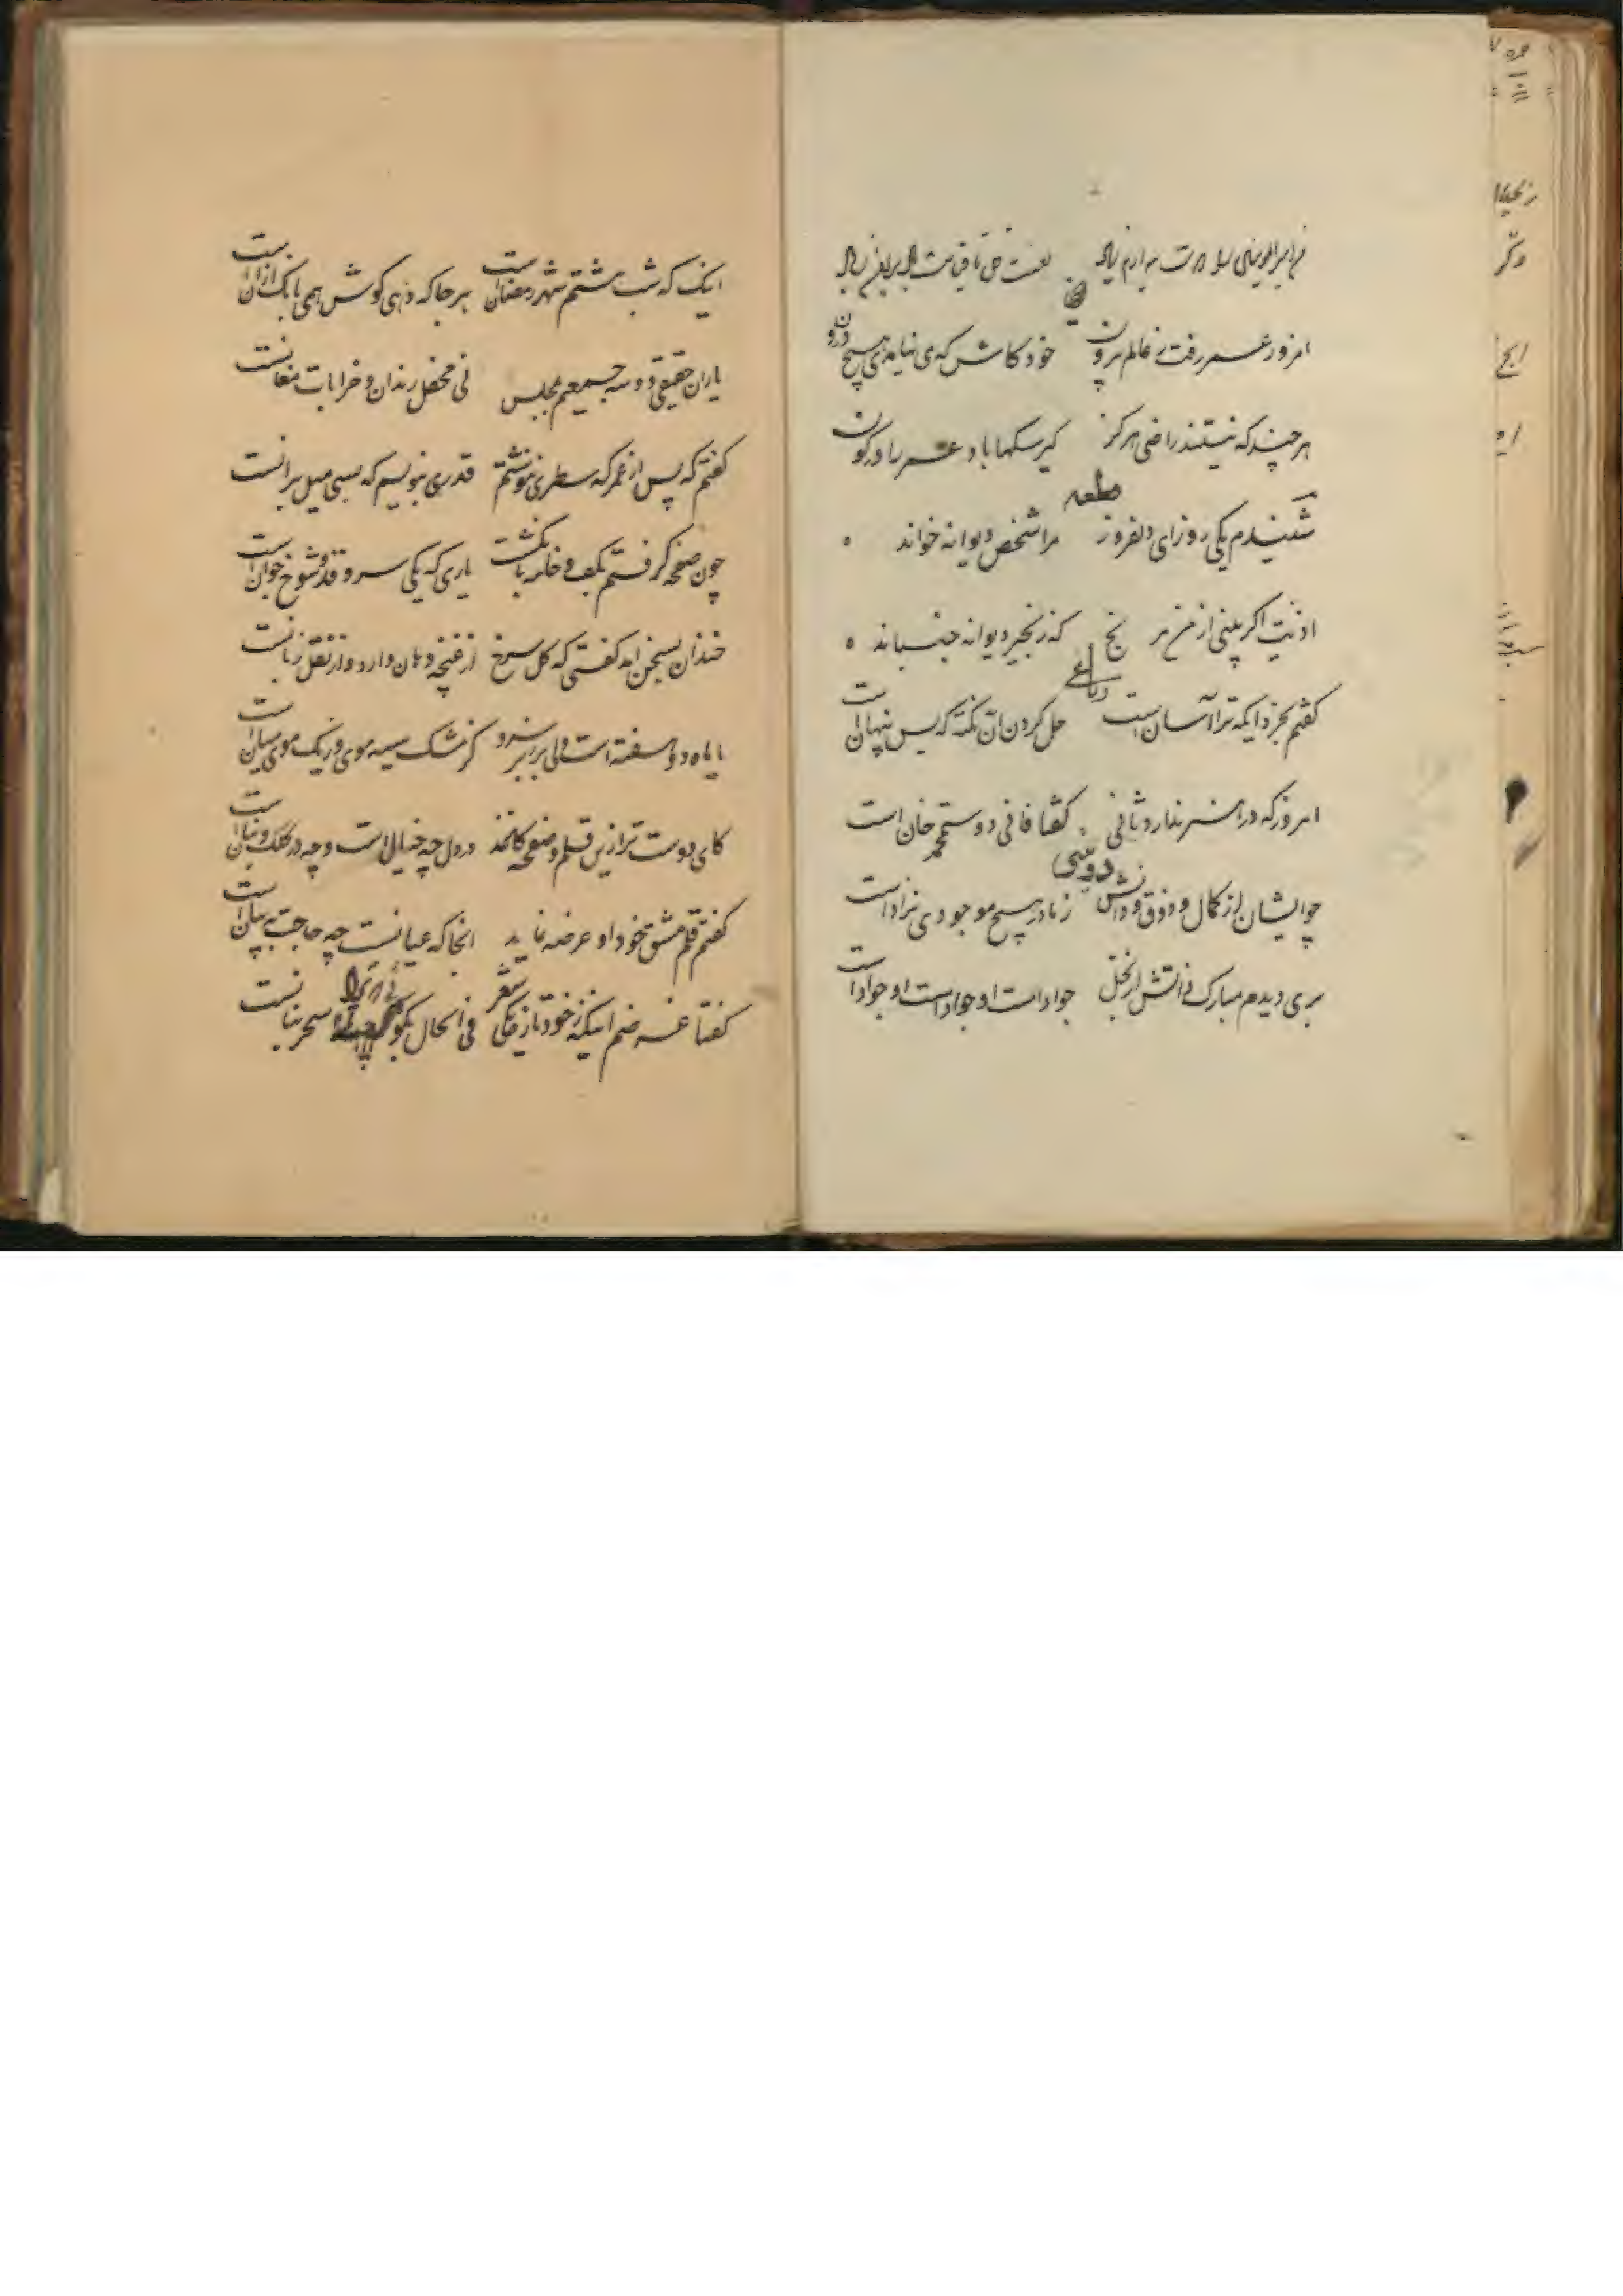 امروز عمر رفت ز عالم برون خود کاش که می نیامدی هیچ درون
هرچند که نیستند راضی هرگز کیر سکها باد عمر را در کون
قطعه
شنیدم یکی روز ای دلفروز مرا شخص دیوانه خواند
اذیت اگر بینی از من مرنج که زنجیر دیوانه جنباند
رباعی
گفتم بخرد ایکه ترا آسان است حل کردن آن نکته که بس پنهان است
امروز که در هنر ندارد ثانی گفتا فانی دوستمحمد خان است
دو بیتی
جوایشان از کمال و ذوق و دانش ز مادر هیچ موجودی نزاد است
بری دیدم مبارک ذاتش از بخل جواد است او جواد است او جواد است
اینک که شب هشتم شهر رمضان است هر جا که دهی گوش همی بانک اذان است
یاران حقیقی دو سه جمعیم بمجلس نی محفل رندان و خرابات مغانست
گفتم که پس از عمر که سطری ننوشتم قدری بنویسم که بسی میل برانست
چون صفحه گرفتم بکف و خامه بانگشت یاری که یکی سرو قد و شوخ جوان است
خندان بسخن امد گفتی که گل سرخ از غنچه دهان دارد و از نقل زبانست
یا ماه دو هفته است ولی بر زبر سرو کز مشک سیه موی و زیک موی میان است
کای دوست ترا زین قلم و صفحه کاغذ در دل چه خیال است و چه در کلک و بنان است
گفتم قلم مشق خود او عرضه نماید انجا که عیانست چه حاجت به بیان است
گفتا غرضم اینکه ز خود تازه یکی شعر فی الحال بگو سحر بیانست